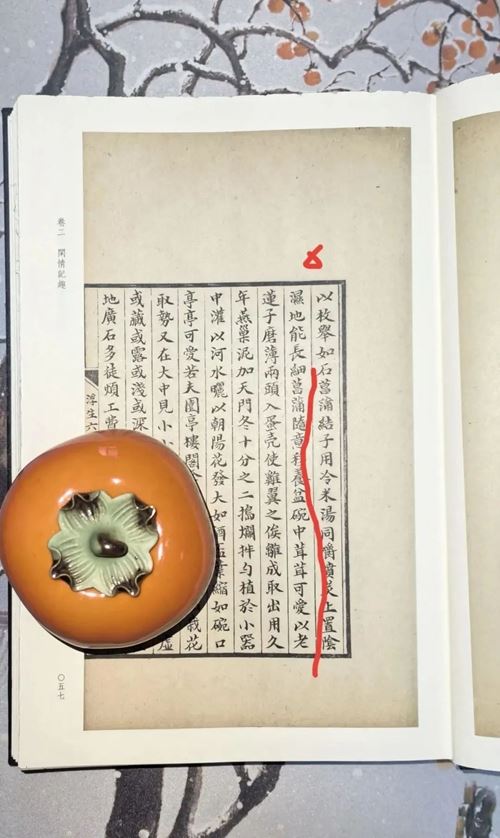 以枚舉如石菖蒲結子用冷米湯同嚼噴炭上置陰
濕地能長細菖蒲隨意移養盆碗中茸茸可愛以老
蓮子磨薄兩頭入蛋壳使雞翼之俟雛成取出用久
年燕巢泥加天門冬十分之二搗爛拌勻植於小器
中灌以河水曬以朝陽花發大如酒縮如碗口
亭亭可愛若夫園亭樓閣栽花
取勢又在大中見小小虛
或藏或露或淺或深
地廣石多徒煩工費
浮生六
卷二 閑情記趣
〇五七